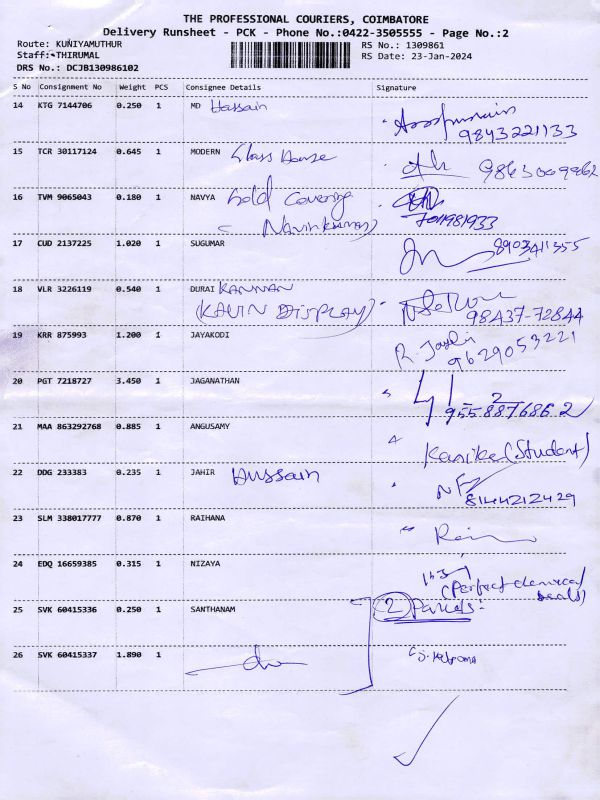 THE PROFESSIONAL COURIERS, COIMBATORE
Delivery Runsheet - PCK - Phone No.:0422-3505555 - Page No.:2
Route: KUNIYAMUTHUR RS No.: 1309861
Staff: THIRUMAL RS Date: 23-Jan-2024
DRS No.: DCJB130986102
S No Consignment No Weight PCS Consignee Details Signature
14 KTG 7144706 0.250 1 MD Hassain
9843221133
15 TCR 30117124 0.645 1 MODERN Glass House
9863009862
16 TVM 9065043 0.180 1 NAVYA Gold Covering
(Navinkumar) 7011981933
17 CUD 2137225 1.020 1 SUGUMAR 8903411355
18 VLR 3226119 0.540 1 DURAI KANNAN
(KAVIN DISPLAY) 98437-72844
19 KRR 875993 1.200 1 JAYAKODI
9629053221
20 PGT 7218727 3.450 1 JAGANATHAN
9558876862
21 MAA 863292768 0.885 1 ANGUSAMY
(Student)
22 DDG 233383 0.235 1 JAHIR Hussain
8144212429
23 SLM 338017777 0.870 1 RAIHANA
24 EDQ 16659385 0.315 1 NIZAYA
(Perfect chemical
seals)
25 SVK 60415336 0.250 1 SANTHANAM 2 Parcels:
26 SVK 60415337 1.890 1 do